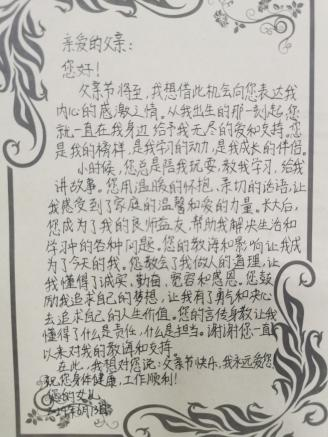 亲爱的父亲:
您好!
父亲节将至,我想借此机会向您表达我
内心的感激之情。从我出生的那一刻起,您
就一直在我身边给予我无尽的爱和支持。您
是我的榜样,是我学习的动力,是我成长的伴侣。
小时候,您总是陪我玩耍,教我学习,给我
讲故事。您用温暖的怀抱、亲切的话语,让
我感受到了家庭的温馨和爱的力量。长大后,
您成为了我的良师益友,帮助我解决生活和
学习中的各种问题。您的教诲和影响让我成
为了今天的我。您教会了我做人的道理,让
我懂得了诚实、勤奋、宽容和感恩。您鼓
励我追求自己的梦想,让我有了勇气和决心
去追求自己的人生价值。您的言传身教让我
懂得了什么是责任,什么是担当。谢谢您一直
以来对我的教诲和支持
在此,我想对您说:父亲节快乐,我永远爱您
祝您身体健康,工作顺利!
您的女儿
6月13日